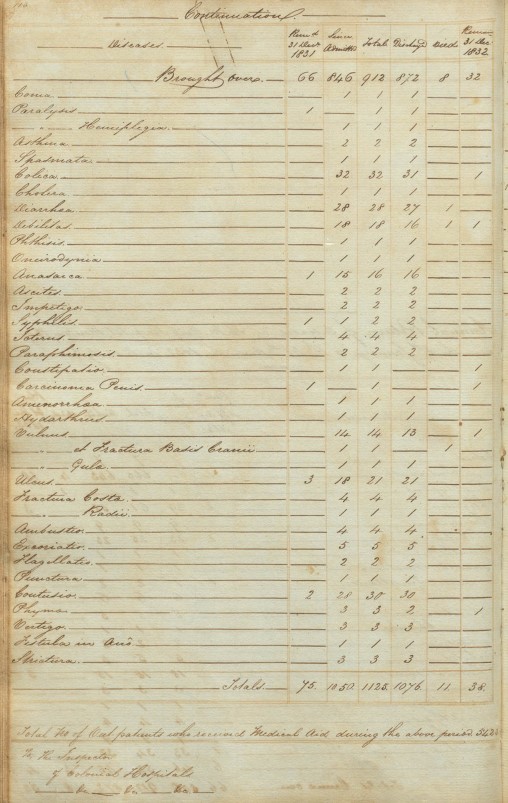 Continuation
Diseases. Remt. 31 Decr 1831 Since Admitted Total Dischgd Died Remain 31 Dec 1832
Brought over. 66 846 912 872 8 32
Coma — 1 1 1 — —
Paralysis 1 — 1 1 — —
" Hemiplegia — 1 1 1 — —
Asthma — 2 2 2 — —
Spasmata — 1 1 1 — —
Colica — 32 32 31 — 1
Cholera — 1 1 1 — —
Diarrhœa — 28 28 27 1 —
Debilitas — 18 18 16 1 1
Phthisis — 1 1 1 — —
Oneirodynia — 1 1 1 — —
Anasarca 1 15 16 16 — —
Ascites — 2 2 2 — —
Impetigo — 2 2 2 — —
Syphilis 1 1 2 2 — —
Icterus — 4 4 4 — —
Paraphimosis — 2 2 2 — —
Constipatio — 1 1 — — 1
Carcinoma Penis 1 — 1 — — 1
Amenorrhœa — 1 1 1 — —
Hydarthrus — 1 1 1 — —
Vulnus — 14 14 13 — 1
" et Fractura Basis Cranii — 1 1 — 1 —
" Gula — 1 1 1 — —
Ulcus 3 18 21 21 — —
Fractura Costa — 4 4 4 — —
" Radii — 1 1 1 — —
Ambustio — 4 4 4 — —
Excoriatio — 5 5 5 — —
Flagellatio — 2 2 2 — —
Punctura — 1 1 1 — —
Contusio 2 28 30 30 — —
Phyma — 3 3 2 — 1
Vertigo — 3 3 3 — —
Fistula in Ano — 1 1 1 — —
Strictura — 3 3 3 — —
Totals 75. 1050. 1125. 1076. 11. 38.
Total No of Out patients who received Medical Aid during the above period
To the Inspector
of Colonial Hospitals